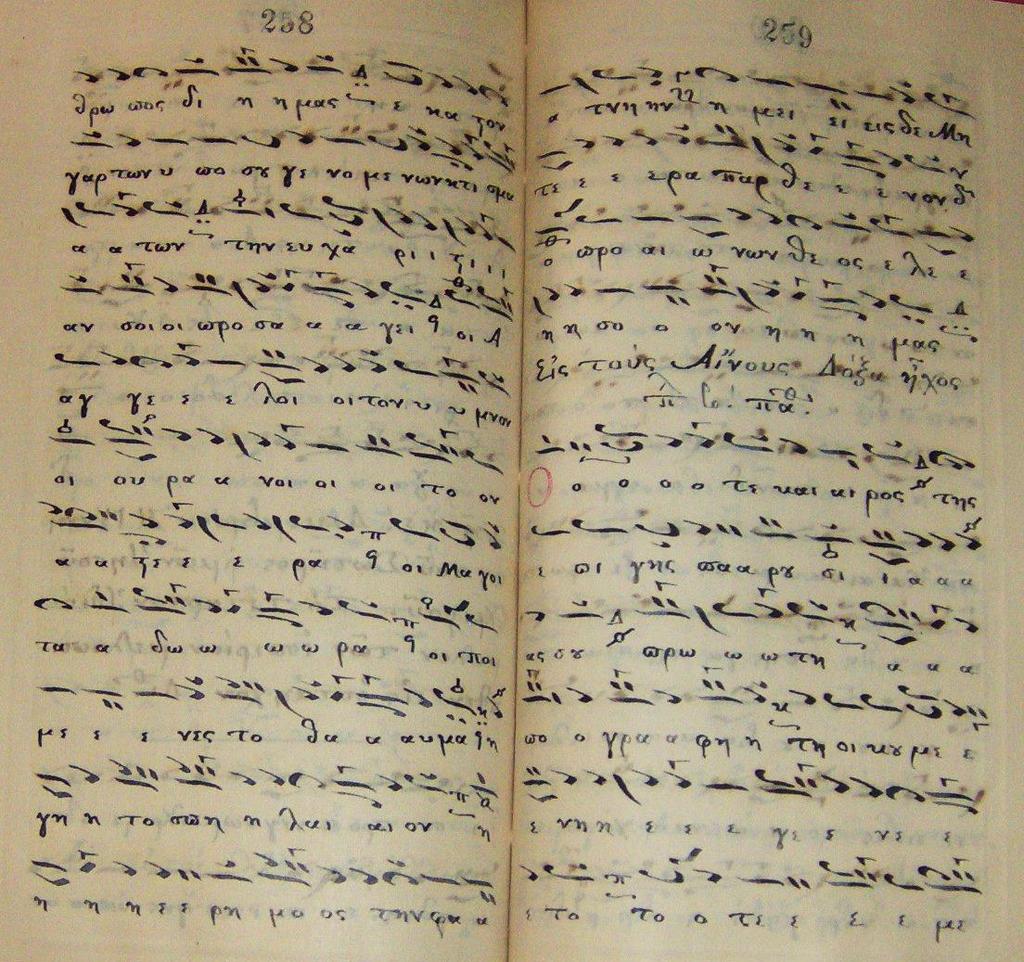 258
θρω πος δι η η μας ε κα τον
γαρ των υ πο σου γε νο με νων κτι σμα
α α των την ευ χα ρι ι τι ι ι
αν σοι οι προ σα α α γει οι Α
αγ γε ε ε λοι οι τον υ υ μνον
οι ου ρα α νοι οι οι το ον
α α τε ε ε ρα οι Μα γοι
τα α δω ω ω ω ρα οι ποι
με ε ε νες το θα α αυ μα η
γη η το σπη η λαι αι ον η
η η η ε ε ρη μο ος την φα α
259
α τνη ην η μει ει εις δε Μη
τε ε ε ε ρα παρ θε ε ε νον
ο προ αι ω νων θε ος ε λε ε
η η σο ο ον η η η μας
Εἰς τοὺς Αἴνους Δόξα ἦχος
πλ β. πα.
Ο ο ο ο ο τε και αι ρος της
ε πι γης πα α ρου σι ι α α α
ας σου πρω ω ω τη α α α
πο ο γρα α φη η τη οι κου με ε
ε νη η ε ε ε γε ε νε ε
ε το το ο τε ε ε ε με